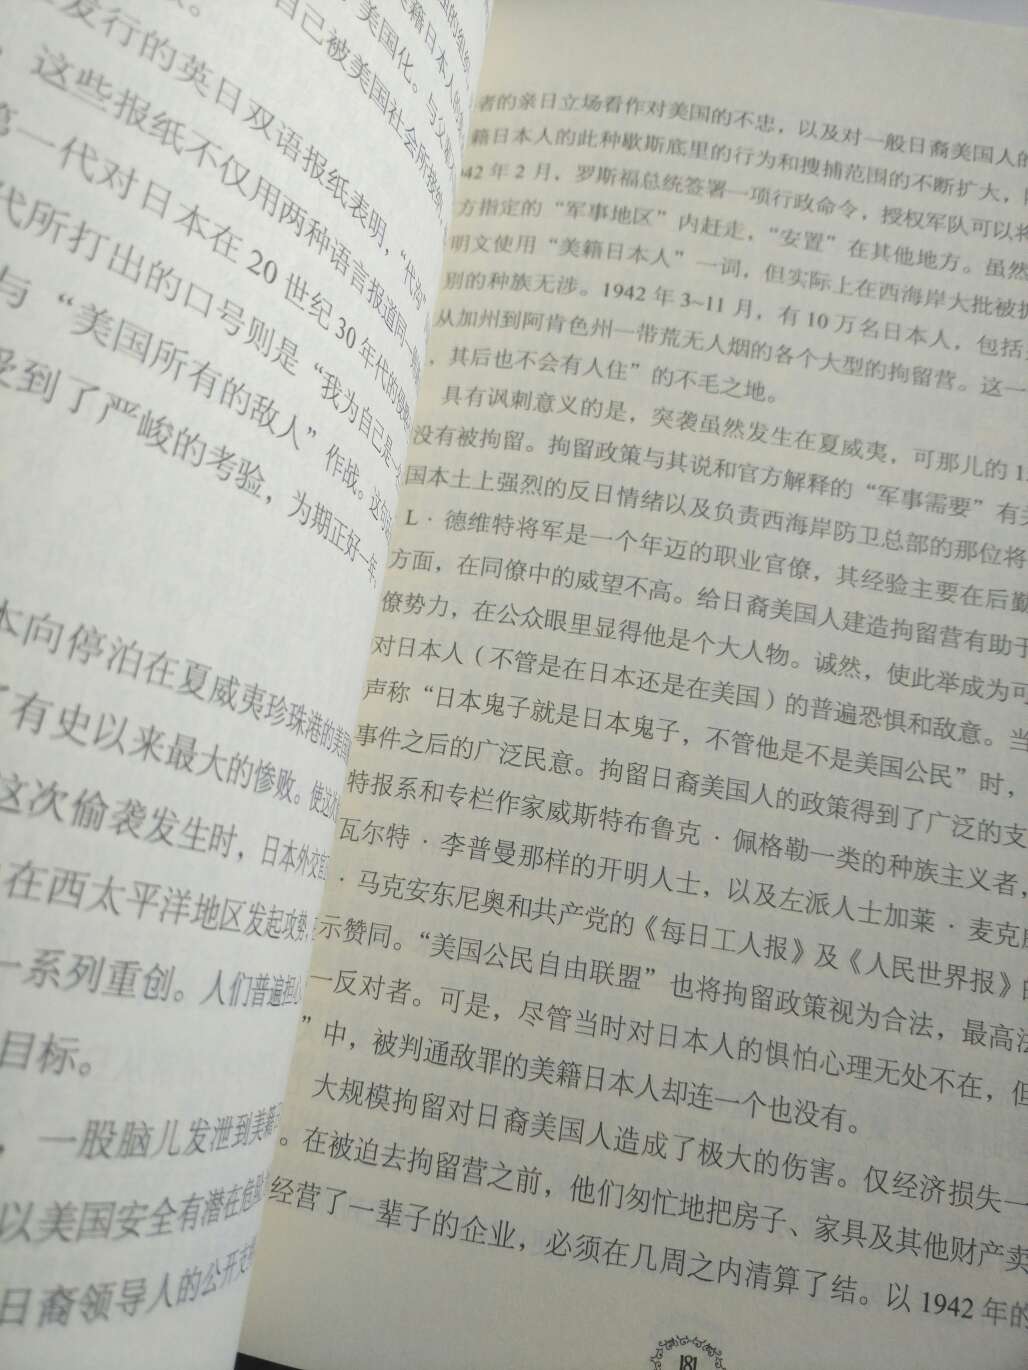 发行的英日双语报纸表明，“代沟
这些报纸不仅用两种语言报道同一
第一代对日本在20世纪30年代的侵略
代所打出的口号则是“我为自己是一
与“美国所有的敌人”作战。这
受到了严峻的考验，为期正好一年，
本向停泊在夏威夷珍珠港的美国
了有史以来最大的惨败。使这
这次偷袭发生时，日本外交官
在西太平洋地区发起攻势，
一系列重创。人们普遍担心
目标。
，一股脑儿发泄到美籍
以美国安全有潜在危险
日裔领导人的公开支持
美国化。与父辈
自己被美国社会所接纳
者的亲日立场看作对美国的不忠，以及对一般日裔美国人的
籍日本人的此种歇斯底里的行为和搜捕范围的不断扩大，
942年2月，罗斯福总统签署一项行政命令，授权军队可以将
方指定的“军事地区”内赶走，“安置”在其他地方。虽然
明文使用“美籍日本人”一词，但实际上在西海岸大批被拘
别的种族无涉。1942年3~11月，有10万名日本人，包括
从加州到阿肯色州一带荒无人烟的各个大型的拘留营。这一
，其后也不会有人住”的不毛之地。
具有讽刺意义的是，突袭虽然发生在夏威夷，可那儿的1
没有被拘留。拘留政策与其说和官方解释的“军事需要”有关
国本土上强烈的反日情绪以及负责西海岸防卫总部的那位将
L·德维特将军是一个年迈的职业官僚，其经验主要在后勤
方面，在同僚中的威望不高。给日裔美国人建造拘留营有助于
僚势力，在公众眼里显得他是个大人物。诚然，使此举成为可
对日本人（不管是在日本还是在美国）的普遍恐惧和敌意。当
声称“日本鬼子就是日本鬼子，不管他是不是美国公民”时，
事件之后的广泛民意。拘留日裔美国人的政策得到了广泛的支
特报系和专栏作家威斯特布鲁克·佩格勒一类的种族主义者，
瓦尔特·李普曼那样的开明人士，以及左派人士加莱·麦克
·马克安东尼奥和共产党的《每日工人报》及《人民世界报》的
示赞同。“美国公民自由联盟”也将拘留政策视为合法，最高法
一反对者。可是，尽管当时对日本人的惧怕心理无处不在，但
”中，被判通敌罪的美籍日本人却连一个也没有。
大规模拘留对日裔美国人造成了极大的伤害。仅经济损失一
。在被迫去拘留营之前，他们匆忙地把房子、家具及其他财产卖
经营了一辈子的企业，必须在几周之内清算了结。以1942年的
181